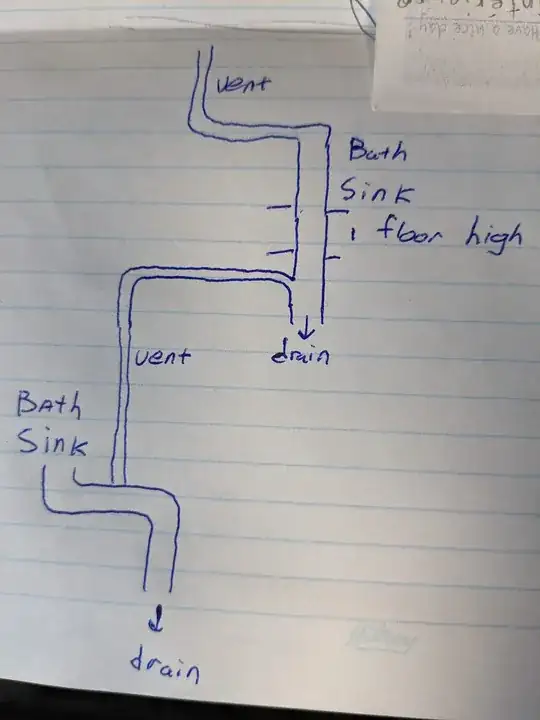 Have a nice day!
vent
Bath
Sink
1 floor high
drain
vent
BAth
Sink
drain